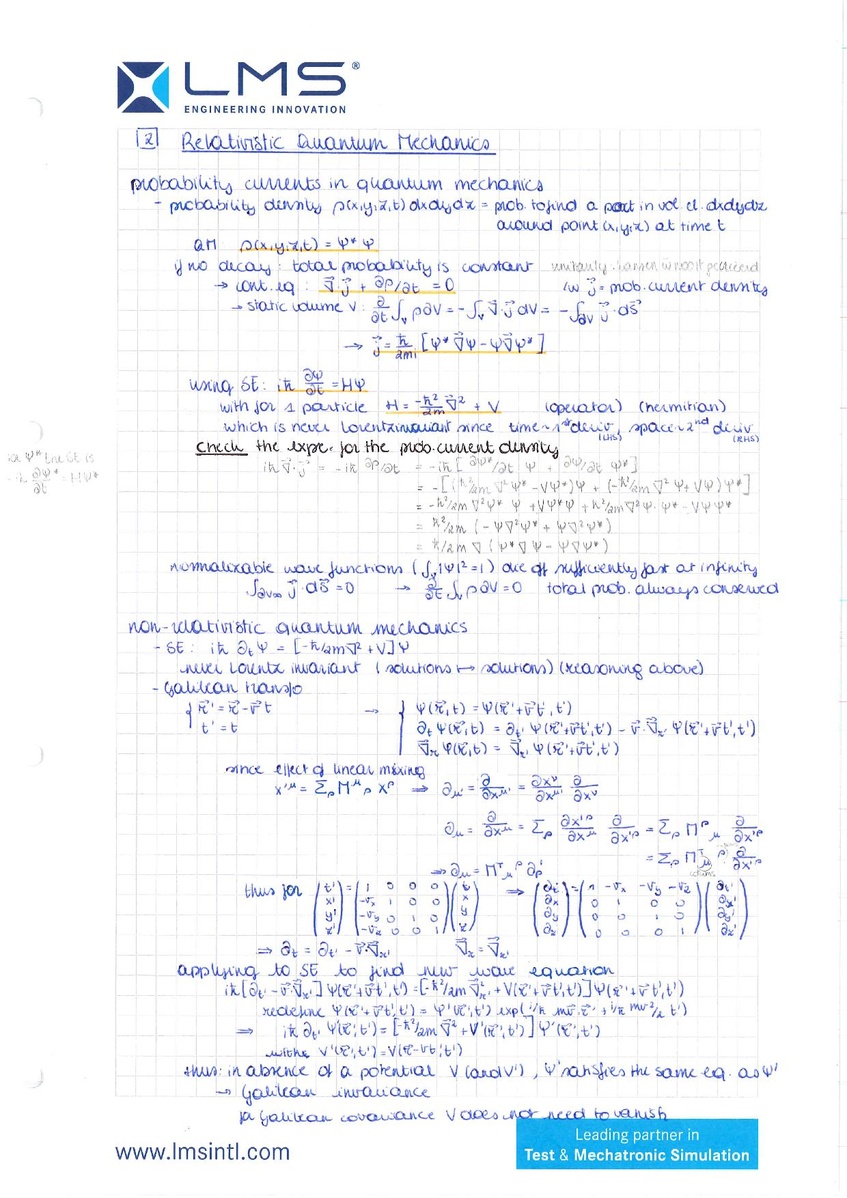 LMS®
ENGINEERING INNOVATION
2 Relativistic Quantum Mechanics
probability currents in quantum mechanics
- probability density ρ(x,y,z,t) dxdydz = prob. to find a part in vol. el. dxdydz
around point (x,y,z) at time t
QM ρ(x,y,z,t) = Ψ* Ψ
if no decay: total probability is constant
→ cont. eq: ∇⃗·j⃗ + ∂ρ/∂t = 0 w j⃗ = prob. current density
→ static volume V: ∂/∂t ∫_V ρ dV = -∫_V ∇⃗·j⃗ dV = -∫_∂V j⃗·dS⃗
→ j⃗ = ħ/2mi [Ψ* ∇⃗Ψ - Ψ∇⃗Ψ*]
using SE: iħ ∂Ψ/∂t = HΨ
with for 1 particle H = -ħ²/2m ∇⃗² + V (operator) (hermitian)
which is never Lorentzinvariant since time ~ 1st deriv, space ~ 2nd deriv
(LHS) (RHS)
check the expr. for the prob. current density
iħ ∇⃗·j⃗ = -iħ ∂ρ/∂t = -iħ [∂Ψ*/∂t Ψ + ∂Ψ/∂t Ψ*]
= -[(ħ²/2m ∇²Ψ* - VΨ*)Ψ + (-ħ²/2m ∇²Ψ + VΨ)Ψ*]
= -ħ²/2m ∇²Ψ* Ψ + VΨ*Ψ + ħ²/2m ∇²Ψ·Ψ* - VΨΨ*
= ħ²/2m (-Ψ∇²Ψ* + Ψ∇²Ψ*)
= ħ/2m ∇ (Ψ*∇Ψ - Ψ∇Ψ*)
-iħ ∂Ψ*/∂t = HΨ*
normalizable wave functions (∫_V |Ψ|² = 1) die off sufficiently fast at infinity
∫_∂V∞ j⃗·dS⃗ = 0 → ∂/∂t ∫_V ρ dV = 0 total prob. always conserved
non-relativistic quantum mechanics
- SE: iħ ∂tΨ = [-ħ/2m ∇² + V]Ψ
never Lorentz invariant (solutions ↦ solutions) (reasoning above)
- Galilean transfo
{ r⃗' = r⃗ - v⃗ t → { Ψ(r⃗,t) = Ψ(r⃗'+v⃗t',t')
t' = t ∂tΨ(r⃗,t) = ∂t'Ψ(r⃗'+v⃗t',t') - v⃗·∇⃗r' Ψ(r⃗'+v⃗t',t')
∇⃗rΨ(r⃗,t) = ∇⃗r' Ψ(r⃗'+v⃗t',t')
since effect of linear mixing
x'^μ = Σρ M^μ_ρ x^ρ ⇒ ∂μ' = ∂/∂x^μ' = ∂x^ν/∂x^μ' ∂/∂x^ν
∂μ = ∂/∂x^μ = Σρ ∂x'^ρ/∂x^μ ∂/∂x'^ρ = Σρ M^ρ_μ ∂/∂x'^ρ
= Σρ M^T_μ^ρ ∂/∂x'^ρ
⇒ ∂μ = M^T_μ^ρ ∂ρ'
thus for (t' x' y' z') = (1 0 0 0 / -vx 1 0 0 / -vy 0 1 0 / -vz 0 0 1) (t x y z) ⇒ (∂t ∂x ∂y ∂z) = (1 -vx -vy -vz / 0 1 0 0 / 0 0 1 0 / 0 0 0 1) (∂t' ∂x' ∂y' ∂z')
⇒ ∂t = ∂t' - v⃗·∇⃗r' ∇⃗r = ∇⃗r'
applying to SE to find new wave equation
iħ[∂t' - v⃗·∇⃗r']Ψ(r⃗'+v⃗t',t') = [-ħ²/2m ∇⃗²r' + V(r⃗'+v⃗t',t')]Ψ(r⃗'+v⃗t',t')
redefine Ψ(r⃗'+v⃗t',t') = Ψ'(r⃗',t') exp(i/ħ mv⃗·r⃗' + i/ħ mv²/2 t')
⇒ iħ ∂t' Ψ'(r⃗',t') = [-ħ²/2m ∇⃗² + V'(r⃗',t')] Ψ'(r⃗',t')
with V'(r⃗',t') = V(r⃗-v⃗t',t')
thus: in absence of a potential V (and V'), Ψ satisfies the same eq. as Ψ'
→ Galilean invariance
for Galilean covariance V does not need to vanish
www.lmsintl.com
Leading partner in
Test & Mechatronic Simulation